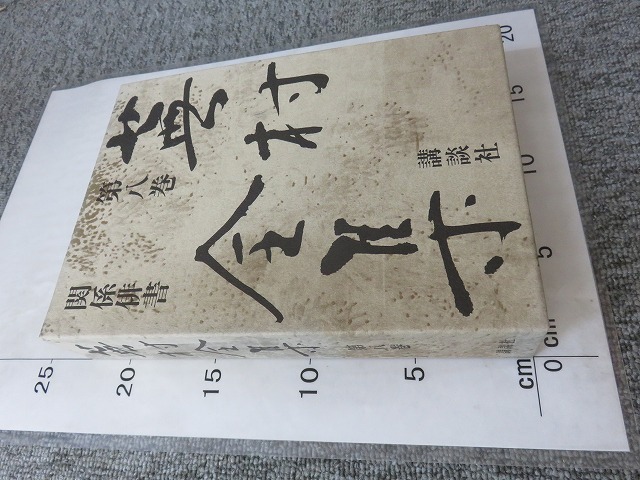 蕪村
全集
第八巻
関係俳書
講談社
蕪村全集 第八巻
25
20
15
10
5
cm
0
cm
5
10
15
20